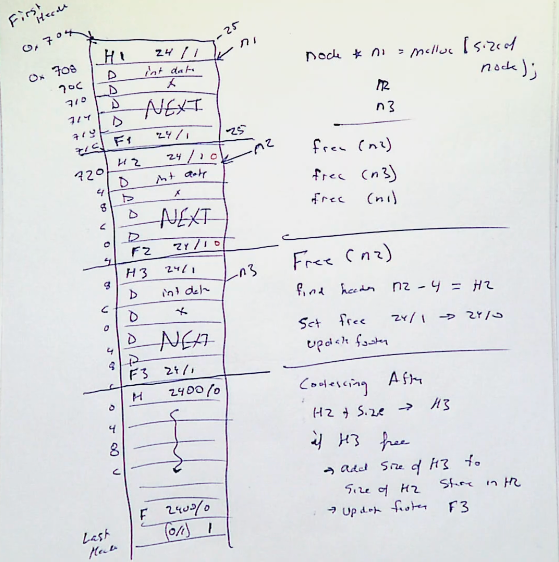 First Header
0x704
-25
H1 24/1
n1
0x708
D int data
70C
D x
710
D
714
D NEXT
718
F1 24/1
71C
-25
n2
720
H2 24/1 0
D int data
4
D x
8
D
C
D NEXT
0
F2 24/1 0
4
H3 24/1
n3
8
D int data
C
D x
0
D
4
D NEXT
8
F3 24/1
C
H 2400/0
0
4
8
C
F 2400/0
(0/1) 1
Last
node * n1 = malloc (sizeof
node);
n2
n3
free (n2)
free (n3)
free (n1)
Free (n2)
find header n2 - 4 = H2
Set free 24/1 → 24/0
update footer
Coalescing After
H2 + Size → H3
if H3 free
→ add size of H3 to
Size of H2 Store in H2
→ update footer F3